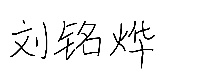 刘铭烨